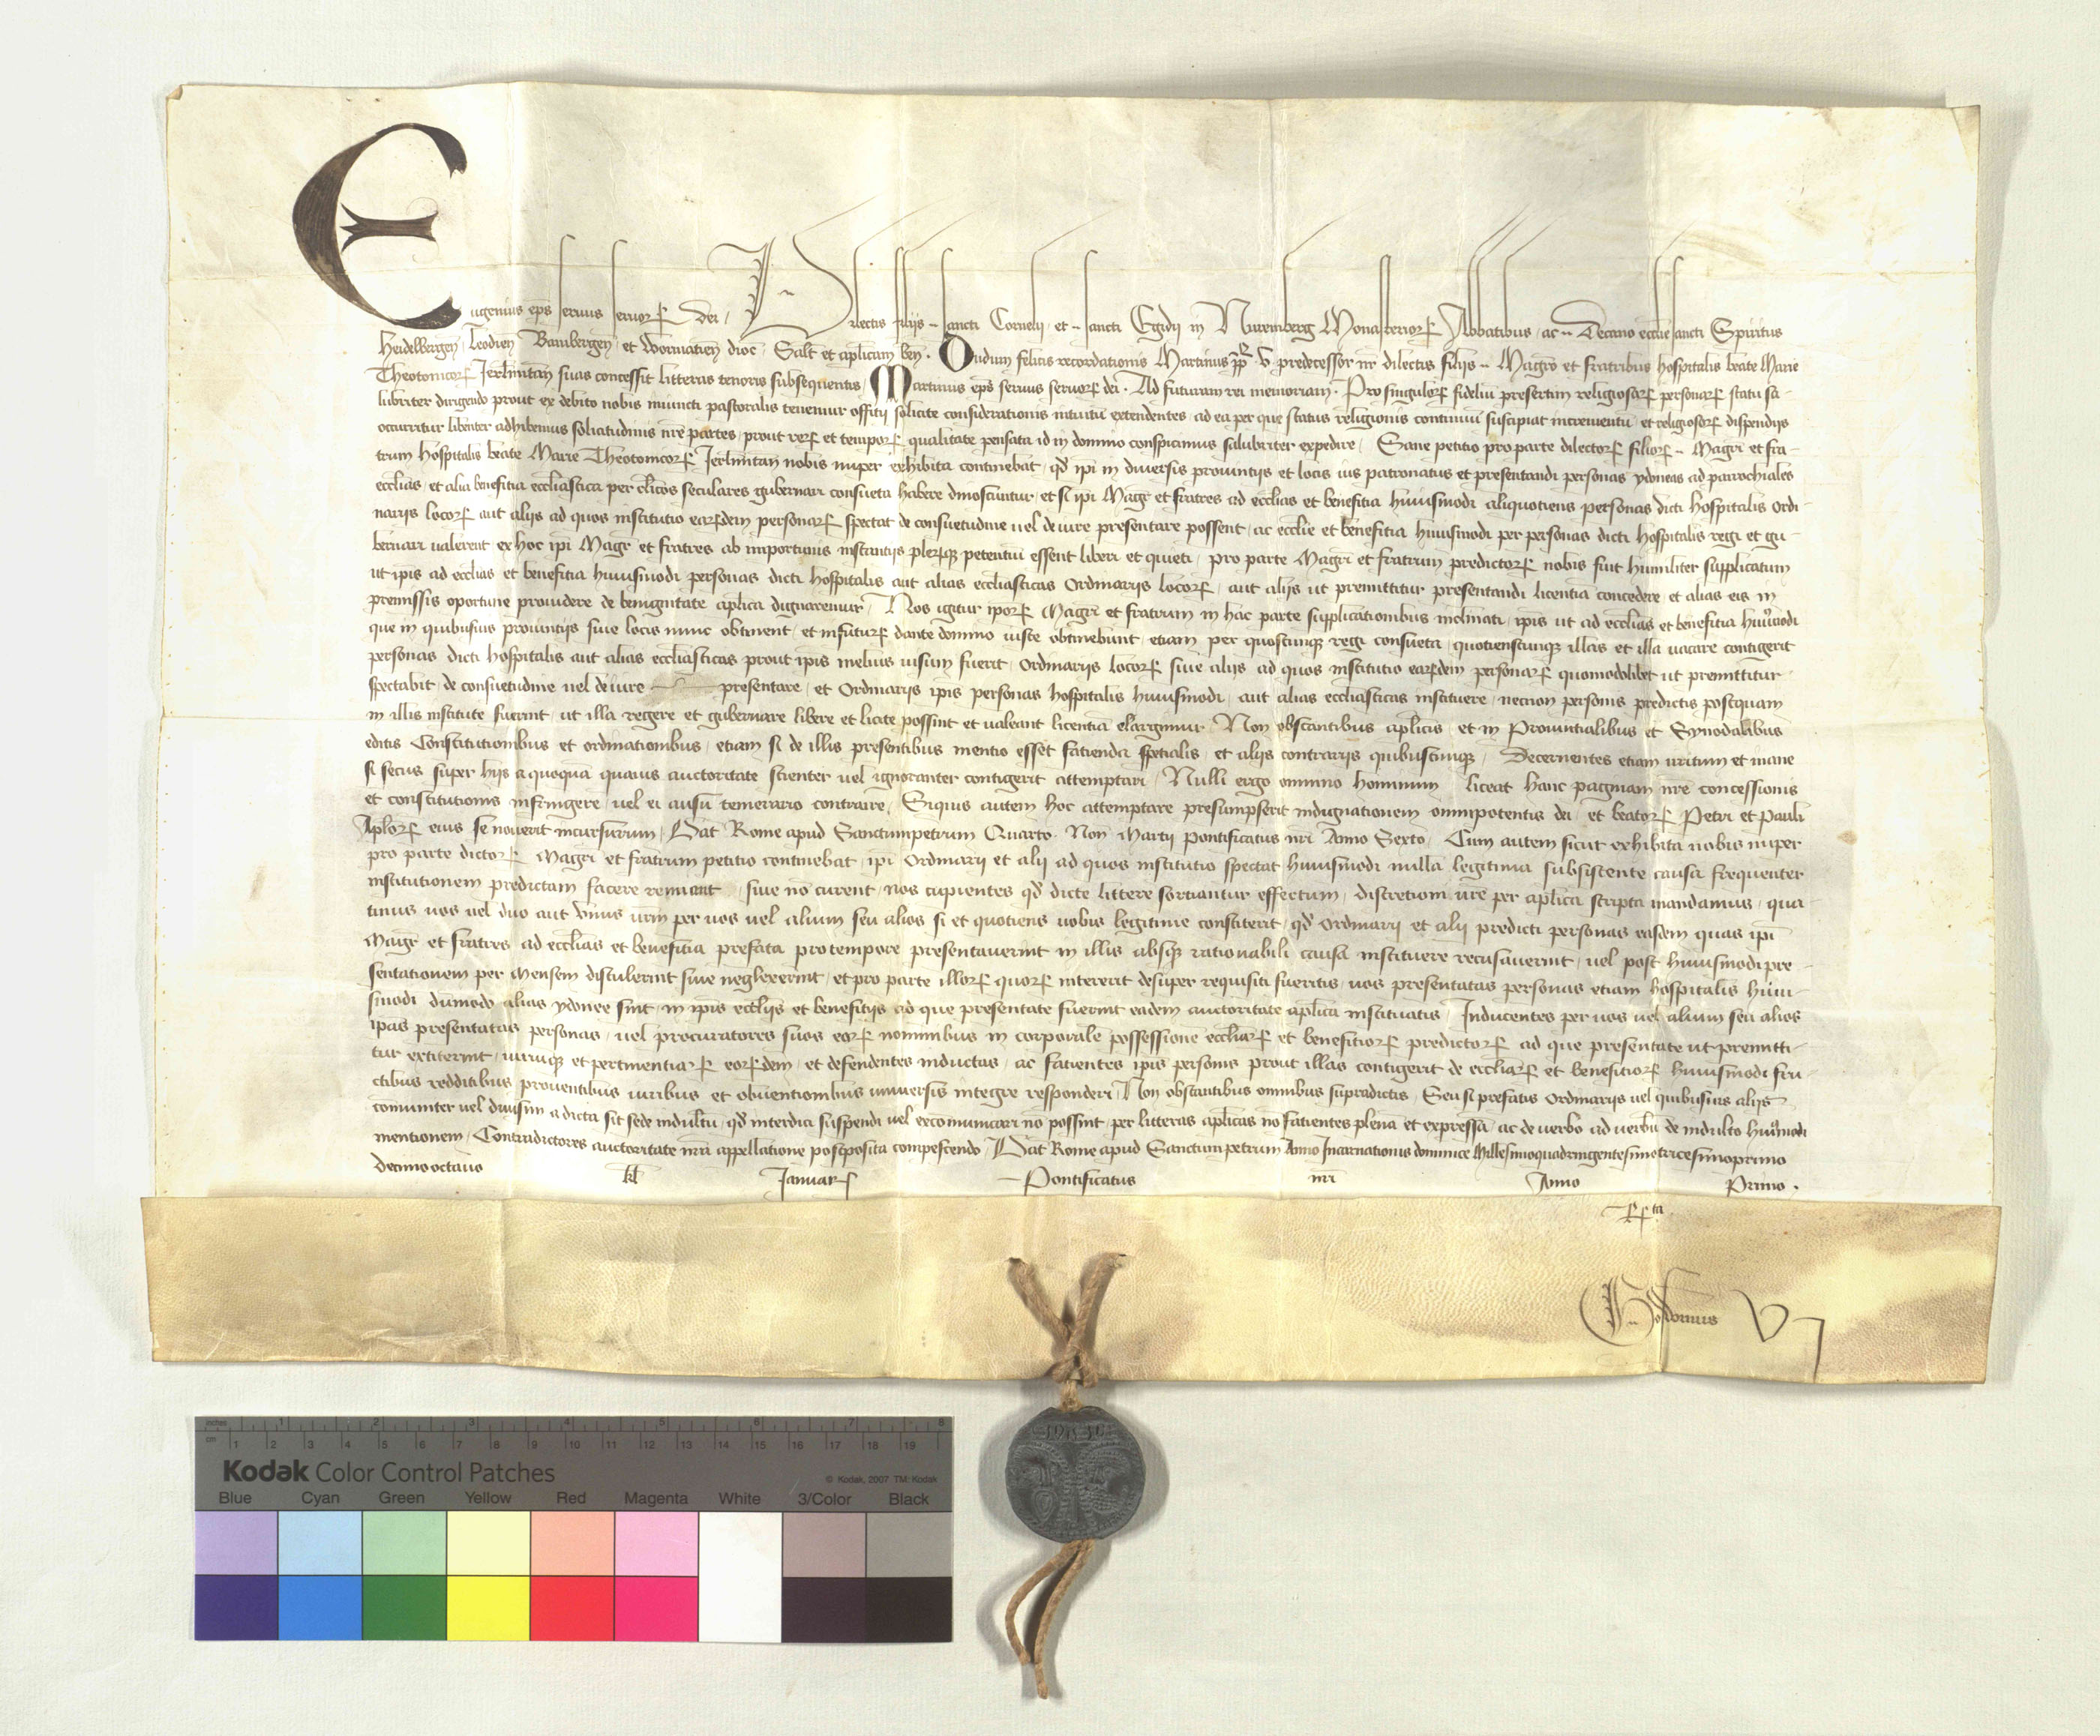 Eugenius ep̄s seruus seruoꝝ dei / Dilectis filijs ·· sancti Cornelij et ·· sancti Egidij in Nuremberg Monasterioꝝ Abbatibus / ac ·· Decano eccl̄ie sancti Spiritus
Heidelbergeñ / Leodieñ Bambergeñ et Wormatieñ dioc̄ / Salt̄ et apl̄icam beñ · Dudum felicis recordationis Martinus pp̄ V predecessor nr̄ dilectis filijs ·· Magr̄o et fratribus hospitalis beate Marie
Theotonicoꝝ Jerl̄imitañ suas concessit litteras tenoris subsequentis / Martinus ep̄s seruus seruoꝝ dei · Ad futuram rei memoriam · Pro singuloꝝ fideliū presertim religiosoꝝ personaꝝ statu sa-
lubriter dirigendo prout ex debito nobis iniuncti pastoralis tenemur offitij solicite considerationis intuitū extendentes ad ea per que status religionis continuū suscipiat incrementū et religiosoꝝ dispendijs
occurritur libenter adhibemus solicitudinis nr̄e partes / prout reꝝ et tempoꝝ qualitate pensata id in domino conspicimus salubriter expedire / Sane petitio pro parte dilectoꝝ filioꝝ ·· Magr̄i et fra-
trum hospitalis beate Marie Theotonicoꝝ Jerl̄imitañ nobis nuper exhibita continebat / qd̄ ip̄i in diuersis prouintijs et locis ius patronatus et presentandi personas ydoneas ad parrochiales
eccl̄ias / et alia benefitia eccl̄iastica per cl̄icos seculares gubernari consueta habere dinoscuntur / et si ip̄i Magr̄ et fratres ad eccl̄ias et benefitia huiusmodi aliquotiens personas dicti hospitalis Ordi-
narijs locoꝝ aut alijs ad quos institutio earꝝdem personaꝝ spectat de consuetudine uel de iure presentare possent / ac eccl̄ie et benefitia huiusmodi per personas dicti hospitalis regi et gu-
bernari ualerent ex hoc ip̄i Magr̄ et fratres ab importunis instantijs pleꝝqꝫ petentiū essent liberi et quieti / pro parte Magr̄i et fratrum predictoꝝ nobis fuit humiliter supplicatum
ut ip̄is ad eccl̄ias et benefitia huiusmodi personas dicti hospitalis aut alias eccl̄iasticas Ordinarijs locoꝝ / aut alijs ut premittitur presentandi licentiā concedere et alias eis in
premissis oportune prouidere de benignitate apl̄ica dignaremur / Nos igitur ip̄oꝝ Magr̄i et fratrum in hac parte supplicationibus inclinati / ip̄is ut ad eccl̄ias et benefitia huiꝰmodi
que in quibusuis prouintijs siue locis nunc obtinent / et infutuꝝ dante domino iuste obtinebunt / etiam per quoscunqꝫ regi consueta / quotienscunqꝫ illas et illa uacare contigerit
personas dicti hospitalis aut alias eccl̄iasticas prout ip̄is melius uisum fuerit / Ordinarijs locoꝝ siue alijs ad quos institutio eaꝝdem personaꝝ quomodolibet ut premittitur
spectabit / de consuetudine uel de iure presentare / et Ordinarijs ip̄is personas hospitalis huiusmodi / aut alias eccl̄iasticas instituere / necnon personis predictis postquam
in illis institute fuerint / ut illa regere et gubernare libere et licite possint et ualeant licentiā elargimur / Non obstantibus apl̄icis / et in Prouintialibus et Synodalibus
editis Constitutionibus et ordinationibus / etiam si de illis presentibus mentio esset fatienda spetialis / et alijs contrarijs quibuscunqꝫ / Decernentes etiam irritum et inane
si secus super hijs a quoquā quauis auctoritate scienter uel ignoranter contigerit attemptari / Nulli ergo omnino hominum liceat hanc paginam nr̄e concessionis
et constitutionis infringere / uel ei ausu temerario contraire / Siquis autem hoc attemptare presumpserit indignationem omnipotentis dei / et beatoꝝ Petri et Pauli
Apl̄oꝝ eius se nouerit incursurum / Dat̄ Rome apud Sanctumpetrum Quarto Noñ Martij Pontificatus nr̄i Anno Sexto / Cum autem sicut exhibita nobis nuper
pro parte dictoꝝ Magr̄i et fratrum petitio continebat / ip̄i Ordinarij et alij ad quos institutio spectat huiusmodi nulla legitima subsistente causa frequenter
institutionem predictam facere rennuant / siue nō curent / nos cupientes qd̄ dicte littere sortiantur effectum / discretioni ur̄e per apl̄ica scripta mandamus / qua-
tinus uos uel duo aut Vnus ur̄m per uos uel alium seu alios si et quotiens uobis legitime constiterit / qd̄ Ordinarij et alij predicti personas easdem quas ip̄i
Magr̄ et fratres ad eccl̄ias et benefitia prefata pro tempore presentauerint in illis absqꝫ rationabili causa instituere recusauerint / uel post huiusmodi pre-
sentationem per Mensem distulerint siue neglexerint / et pro parte illoꝝ quoꝝ intererit desuper requisiti fueritis / uos presentatas personas etiam hospitalis huiu-
smodi dūmodo alias ydonee sint in ip̄is eccl̄ijs et benefitijs ad que presentate fuerint eadem auctoritate apl̄ica instituatis / Inducentes per uos uel alium seu alios
ip̄as presentatas personas / uel procuratores suos eoꝝ nominibus in corporalē possessionē eccl̄iaꝝ et benefitioꝝ predictoꝝ ad que presentate ut premitti-
tur extiterint / iuriumqꝫ et pertinentiaꝝ eoꝝdem / et defendentes inductas / ac fatientes ip̄is personis prout illas contigerit de eccl̄iaꝝ et benefitioꝝ huiusmodi fru-
ctibus redditibus prouentibus iuribus et obuentionibus uniuersis integre responderi / Non obstantibus omnibus supradictis / Seu si prefatis Ordinarijs uel quibusuis alijs
cōmuniter uel diuisim a dicta sit sede indultū / qd̄ interdici suspendi uel excōmunicari nō possint / per litteras apl̄icas nō fatientes plenā et expressā ac de uerbo ad uerbū de indulto huiꝰmodi
mentionem / Contradictores auctoritate nr̄a appellatione postposita compescendo / Dat̄ Rome apud Sanctumpetrum Anno Incarnationis dominice Millesimoquadringentesimotricesimoprimo
Decimo octauo kl̄ Januaꝝ Pontificatus nr̄i Anno Primo ·
Rta
Kodak Color Control Patches
© Kodak, 2007 TM: Kodak
inches 1 2 3 4 5 6 7 8
cm 1 2 3 4 5 6 7 8 9 10 11 12 13 14 15 16 17 18 19
Blue Cyan Green Yellow Red Magenta White 3/Color Black